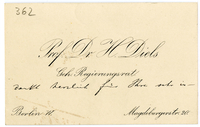 362
Prof. Dr. H. Diels
Geh. Regierungsrat
dankt herzlich für Ihre
Berlin W.
Magdeburgerstr. 20